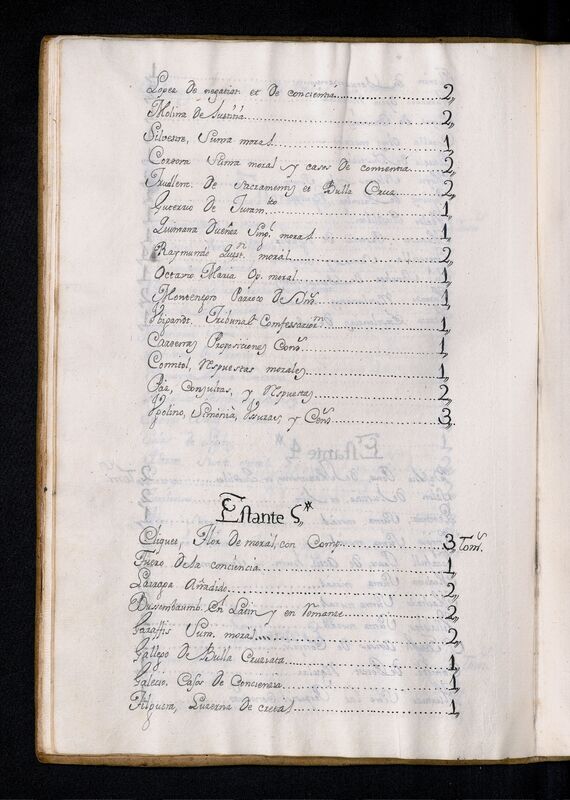 Lopez de negation. et de concientia 2,,
Molina de Justitia 2,,
Silvestre, Suma moral 1,,
Cordova Suma moral y casos de conventia 2,,
Trullenc. de Sacramentis et Bulla Cruz. 2,,
Guerrero de Juram.to 1,,
Quintana Dueñez Sing. moral 1,,
Raymundo Quist. moral 2,,
Octavio Maria Op. moral 1,,
Montenegro Parroco de Ind.s 1,,
Tribunal Confessarior.m 1,,
Proposiciones Con.s 1,,
Comitol, Respuestas morales 1,,
Paz, Consultas, y Respuestas 2,,
Simonia, Usuras, y Con.s 3,,
Estante 5,,
Cliquet, Flor de moral, con Comp. 3,, Tom.s
Fuero de la conciencia 1,,
Larraga Añadido 2,,
Bussembaumb. En Latin y en Romance 2,,
Sum. moral 2,,
Gallego de Bulla Cruciata 1,,
Galecio, Casos de Conciencia 1,,
Filguera, Luzerna de 1,,